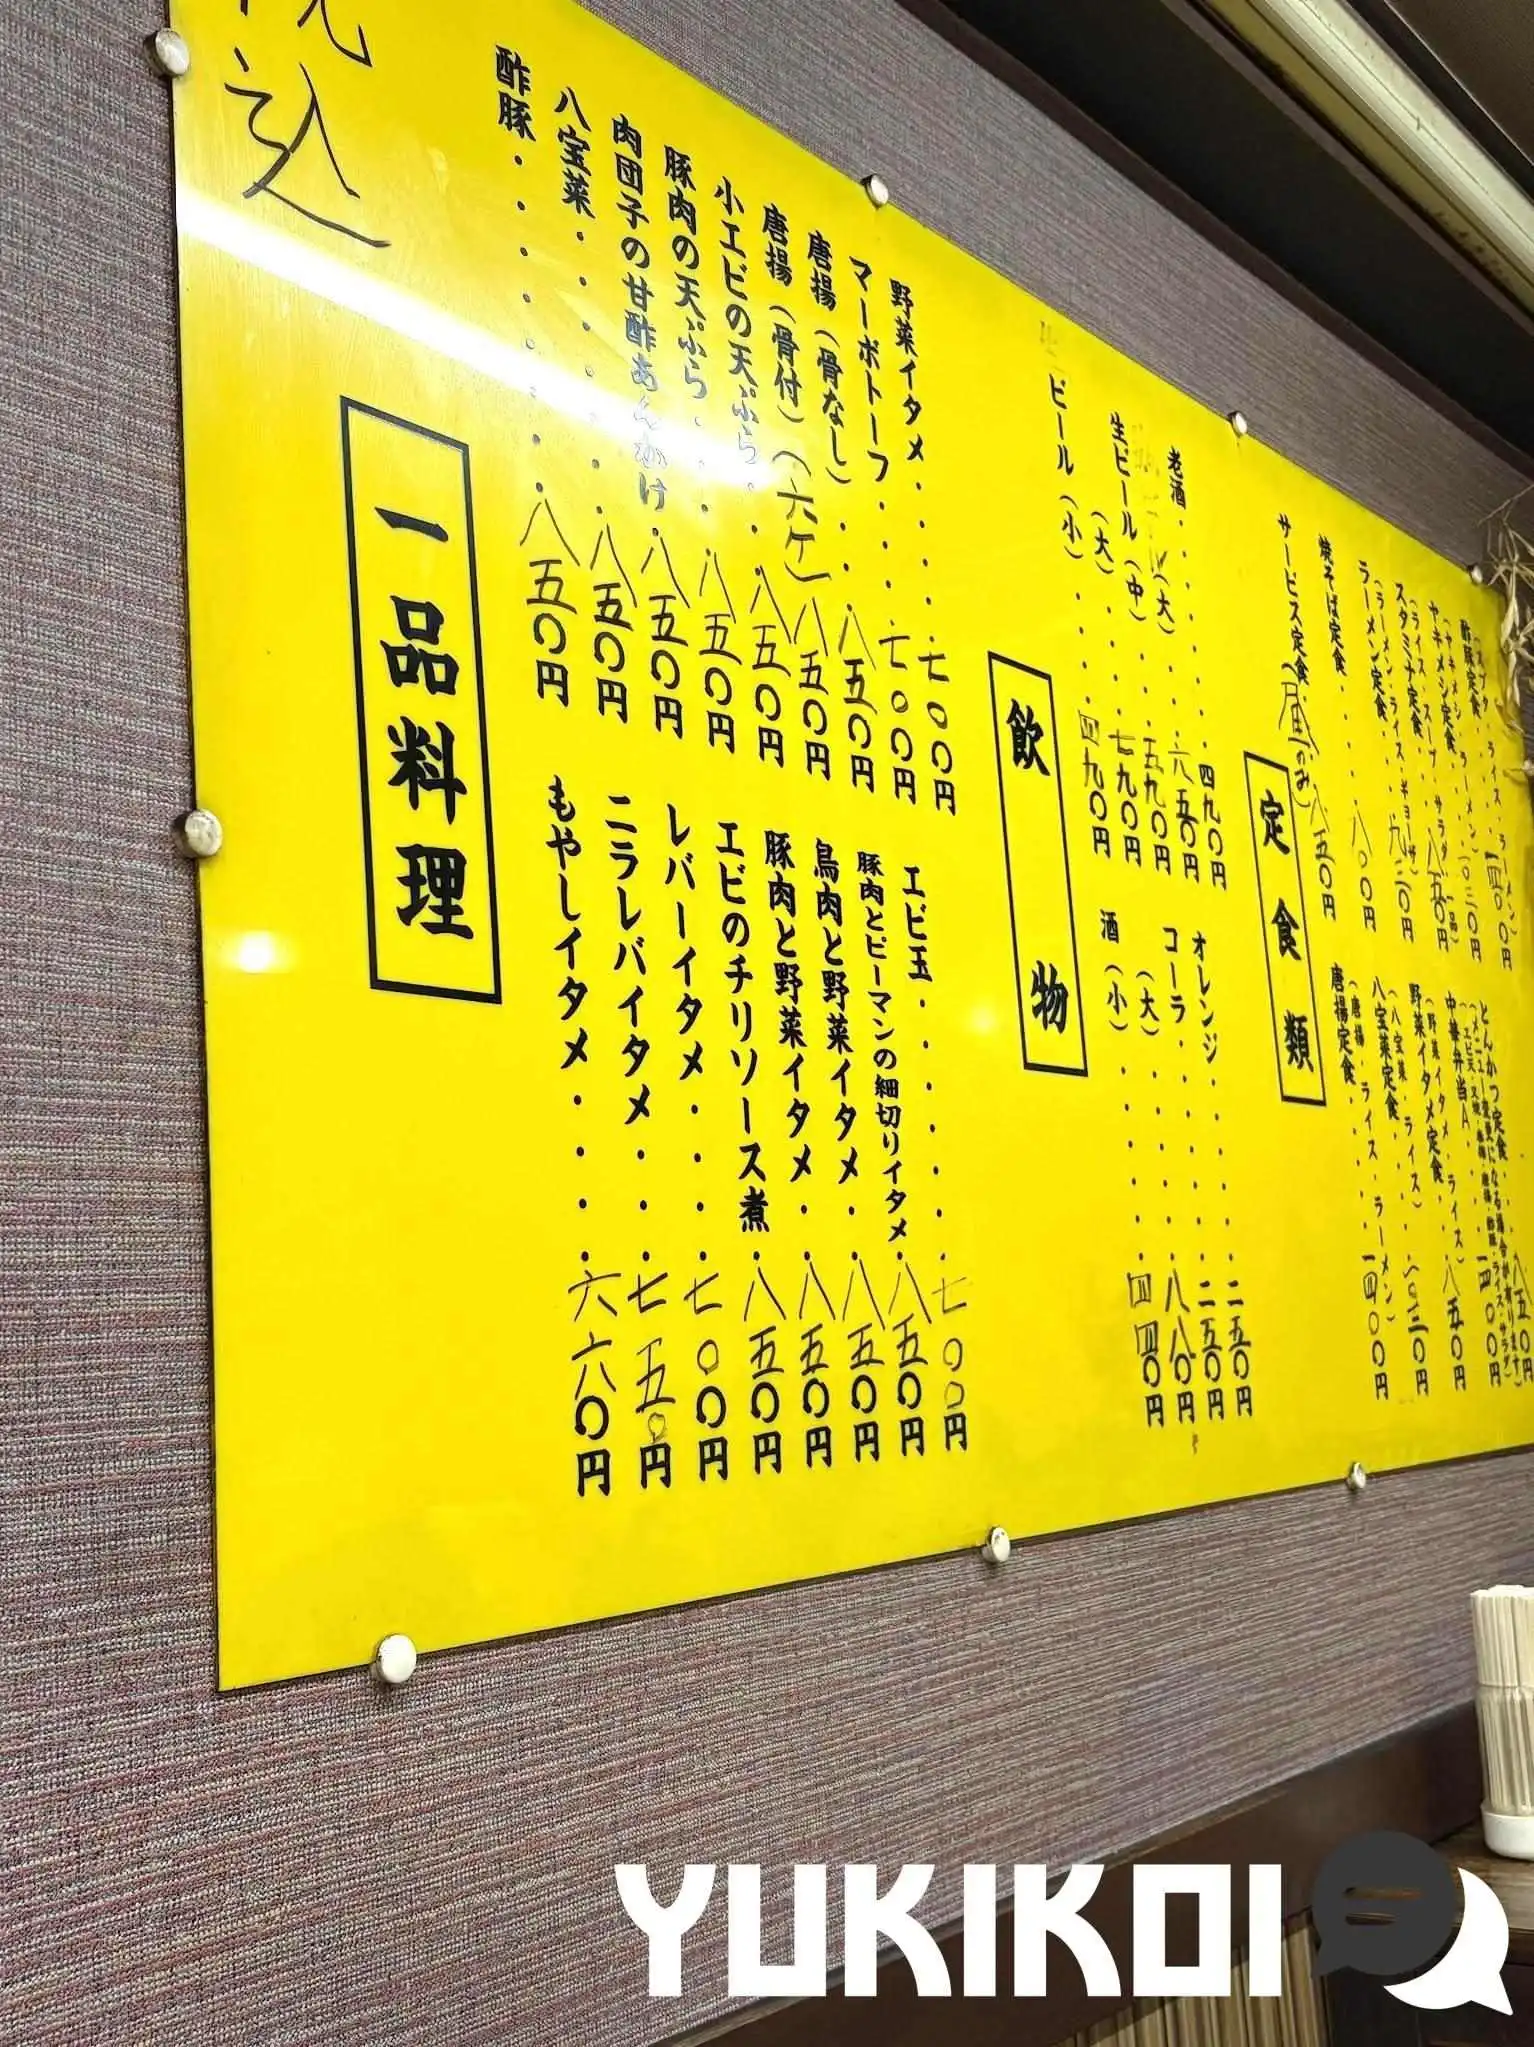 税込
定食類
酢豚定食
(ヤキメシ・ラーメン)
ヤキメシ定食
(ライス・スープ・サラダ・一品)
スタミナ定食
(ラーメン・ライス・ギョーザ)
ラーメン定食
焼そば定食・・・・八〇〇円
サービス定食(昼のみ)八五〇円
とんかつ定食
中華弁当A
(野菜イタメ・ライス)
野菜イタメ定食
(八宝菜・ライス)
八宝菜定食
(唐揚・ライス・ラーメン)
唐揚定食
飲物
老酒・・・・・・四九〇円
(大)・・・六五〇円
生ビール(中)・・・五九〇円
(大)・・・七九〇円
ビール(小)・・・四九〇円
オレンジ・・・・・・二五〇円
コーラ・・・・・・二五〇円
(大)・・・・・八八〇円
酒(小)・・・・・四四〇円
一品料理
野菜イタメ・・・・・七〇〇円
マーボトーフ・・・・七〇〇円
唐揚(骨なし)・・・八五〇円
唐揚(骨付)(六ケ)八五〇円
小エビの天ぷら・・・八五〇円
豚肉の天ぷら・・・・八五〇円
肉団子の甘酢あんかけ・八五〇円
八宝菜・・・・・・・八五〇円
酢豚・・・・・・・・八五〇円
エビ玉・・・・・・・七〇〇円
豚肉とピーマンの細切りイタメ・八五〇円
鳥肉と野菜イタメ・・八五〇円
豚肉と野菜イタメ・・八五〇円
エビのチリソース煮・八五〇円
レバーイタメ・・・・七〇〇円
ニラレバイタメ・・・七五〇円
もやしイタメ・・・・六六〇円
YUKIKOI